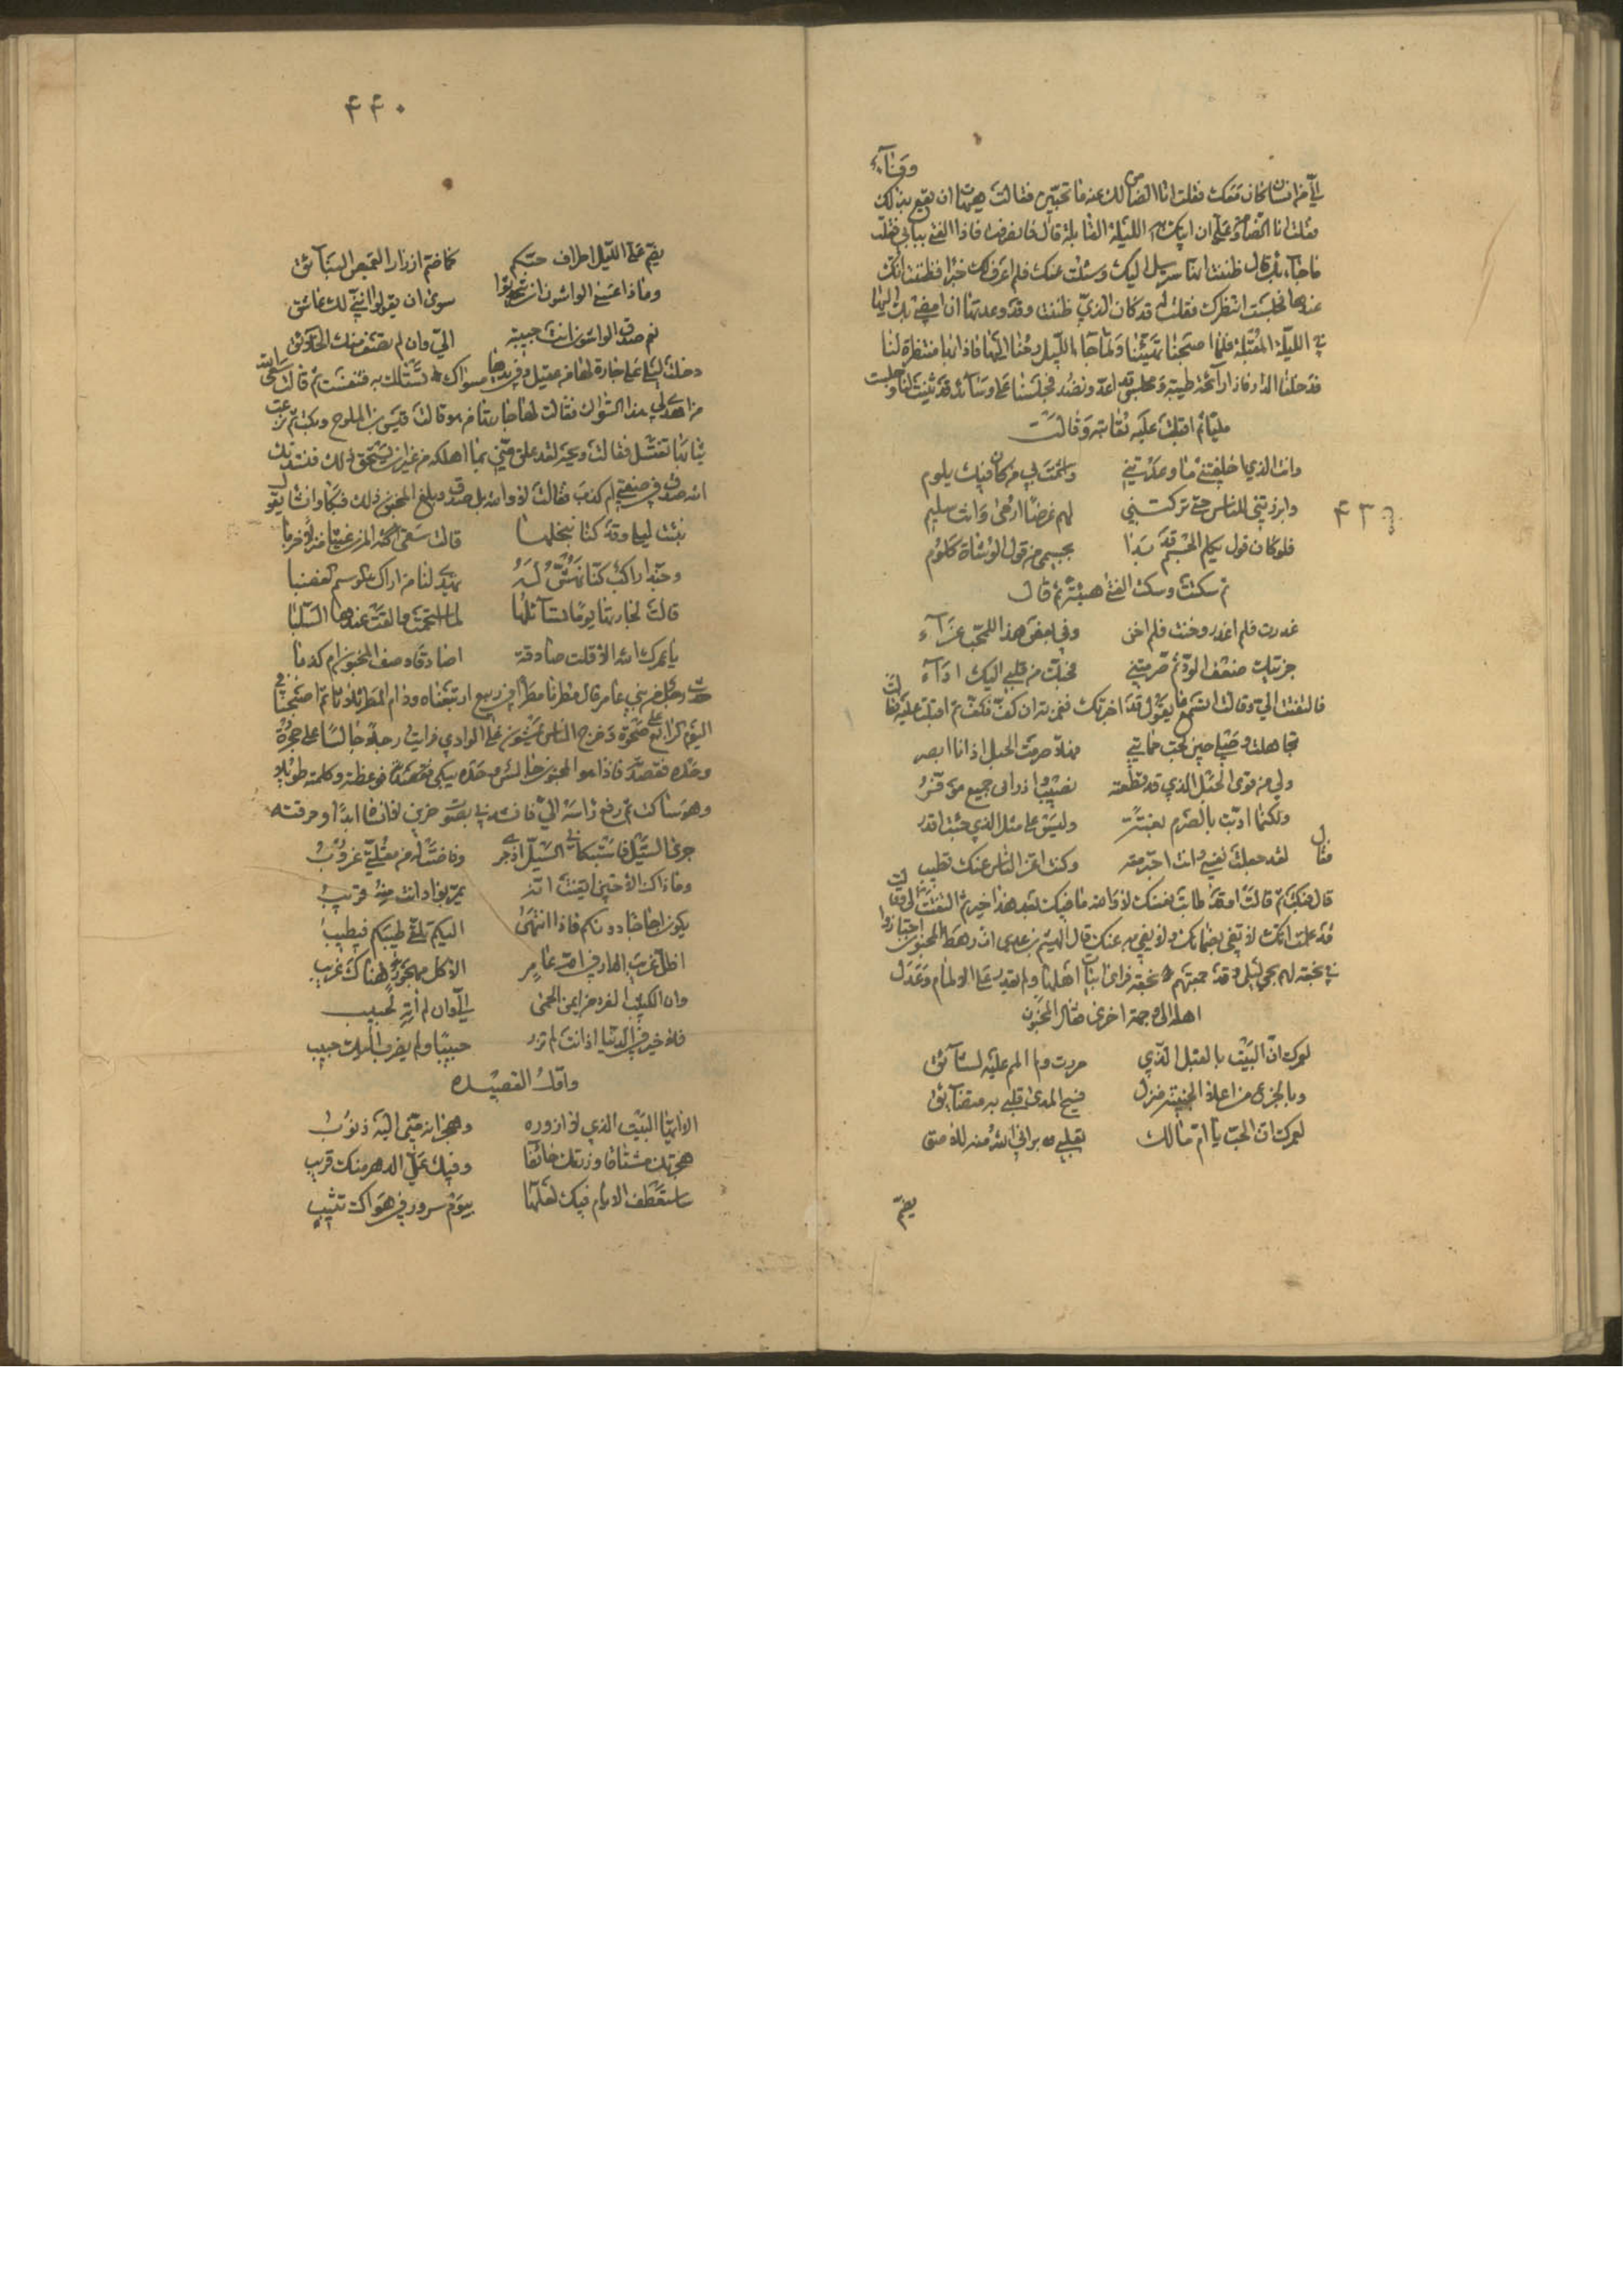 وفناء
فقلت انا الضامن لك عنه ما تحبين فقالت هيهات ان يقع بذلك
فقلت انا الضامن وعلي ان اتيك به الليلة القابلة قال فانصرفت فاذا الفتى ببابي فقلت
ما جاء بك قال ظننت انها سترسل اليك وسئلت عنك فلم اعرف لك خبرا فظننت انك
عندها فجلست انتظرك فقلت له قد كان الذي ظننت وقد وعدتها ان امضي بك اليها
في الليلة المقبلة فلما اصبحنا تهيئنا ولما جاء الليل رحنا اليها فاذا انها منتظرة لنا
فدخلنا الدار فاذا رائحة طيبة ومجلس قد اعد ونضد فجلسنا على وسائد قد ثنيت لنا وجلست
مليا ثم اقبلت عليه تعاتبه وقالت
وانت الذي اخلفتني ما وعدتني واشمت بي من كان فيك يلوم
وابرزتني للناس حتى تركتني لهم غرضا ارمى وانت سليم
۴۳۹
فلو كان قول يكلم الجسم قد بدا بجسمي من قول الوشاة كلوم
ثم سكتت وسكت الفتى هنيئة ثم قال
غدرت فلم اغدر وخنت فلم اخن وفي بعض هذا للمحب عزاء
جزيتك ضعف الود ثم صرمتني فحبك من قلبي اليك اداء
فالتفتت الي وقالت الا تسمع ما يقول قد اخبرتك فغمزته ان كف فكف ثم اقبلت عليه وقالت
تجاهلت وصلي حين لجت عمايتي فهلا صرمت الحبل اذ انا ابصر
ولي من قوى الحبل الذي قد قطعته نصيب واذ رأيي جميع موفر
ولكنما اذنت بالصرم بغتة ولست على مثل الذي جئت اقدر
فقال لقد جعلت نفسي وانت اجترمته وكنت اعز الناس عنك تطيب
قال فبكت ثم قالت او قد طابت نفسك لا والله ما فيك بعد هذا خير ثم التفتت الي وقالت
قد علمت انك لا تفي بضمانك ولا يفي به عنك قال الهيثم بن عدي ان رهط المجنون اجتازوا
في نجعة لهم بحي ليلى وقد جمعتهم نجعة فراى ابيات اهلها ولم يقدر على الالمام وعدل
اهله الى جهة اخرى فقال المجنون
لعمرك ان البيت بالقبل الذي مررت ولم المم عليه لشائق
وبالجزع من اعلى الجنيبة منزل فسيح المدى قلبي به متضائق
لعمرك ان الحب يا ام مالك بقلبي براني الله منه للاصق
يضم
۴۴۰
يضم على الليل اطراف حبكم كما ضم ازرار القميص البنائق
وماذا عسى الواشون ان يتحدثوا سوى ان يقولوا انني لك عاشق
نعم صدق الواشون انت حبيبة الي وان لم تصف منك الخلائق
دخلت ليلى على جارة لها من عقيل وفي يدها مسواك تستاك به فتنفست ثم قالت سقى الله
من اهدى لي هذا السواك فقالت لها جارتها من هو قالت قيس بن الملوح وبكت ثم نزعت
ثيابها تغتسل فقالت ويحه لقد علق مني بما اهلكه من غير ان استحق ذلك فنشدتك
الله صدق في صفتي ام كذب فقالت لا والله بل صدق وبلغ المجنون ذلك فبكا وانشا يقول
نبئت ليلى وقد كنا نبخلها قالت سقى الله المزن غيثا منزلا خربا
وحبذا راكب كنا نهش له يهدي لنا من اراك الموسم القضبا
قالت لجارتها يوما تسائلها لما استحمت والقت عندها السلبا
يا عمرك الله الا قلت صادقة اصادقا وصف المجنون ام كذبا
حدث رجل من بني عامر قال مطرنا مطرا في ربيع ارتبعناه ودام المطر ثلاثا ثم اصبحنا في
اليوم الرابع على صحوة وخرج الناس يمشون على الوادي فرايت رجلا جالسا على حجرة
وحده فقصدته فاذا هو المجنون جالس وحده يبكي فوعظته وكلمته طويلا
وهو ساكت ثم رفع راسه الي فانشدني بصوت حزين لا انساه ابدا وحرقته
جرى السيل فاستبكاني السيل اذ جرى وفاضت له من مقلتي غروب
وما ذاك الا حين ايقنت انه يمر بواد انت منه قريب
يكون اجاجا دونكم فاذا انتهى اليكم تلقى طيبكم فيطيب
اظل غريب الدار في ارض عامر الا كل مهجور هناك غريب
وان الكثيب الفرد من ايمن الحمى الي وان لم آته لحبيب
فلا خير في الدنيا اذا انت لم تزر حبيبا ولم يطرب اليك حبيب
واول القصيده
الا ايها البيت الذي لا ازوره وهجرانه مني اليه ذنوب
هجرتك مشتاقا وزرتك خائفا وفيك علي الدهر منك قريب
ساستعطف الايام فيك لعلها بيوم سرور في هواك تثيب